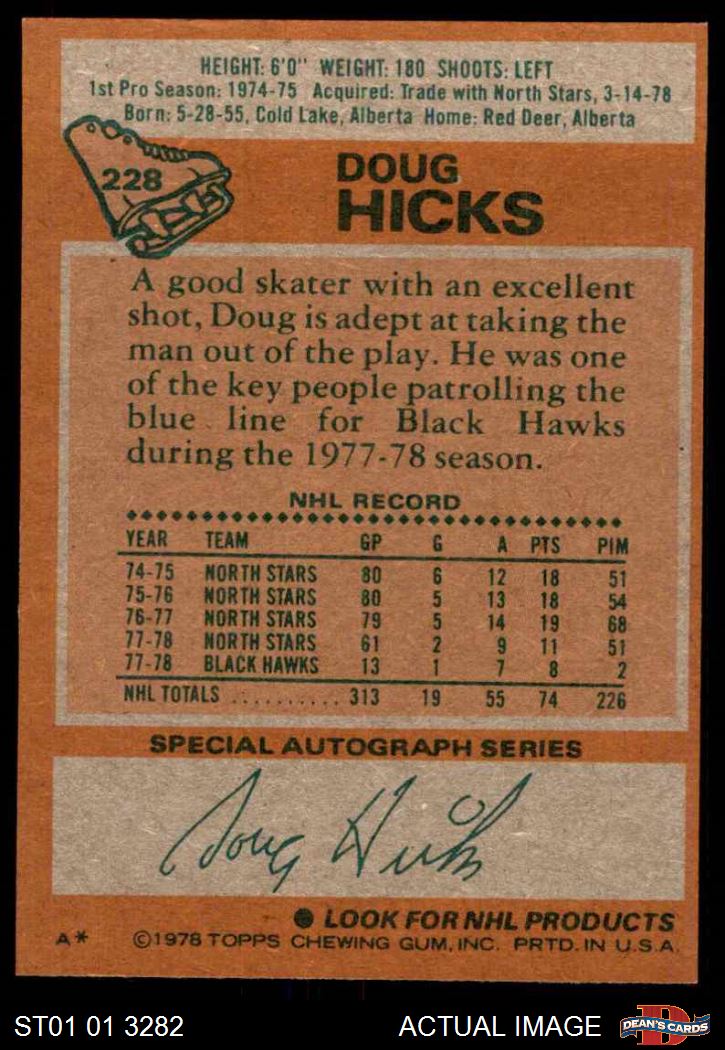 HEIGHT: 6'0" WEIGHT: 180 SHOOTS: LEFT
1st Pro Season: 1974-75 Acquired: Trade with North Stars, 3-14-78
Born: 5-28-55, Cold Lake, Alberta Home: Red Deer, Alberta
228
DOUG
HICKS
A good skater with an excellent
shot, Doug is adept at taking the
man out of the play. He was one
of the key people patrolling the
blue line for Black Hawks
during the 1977-78 season.
NHL RECORD
YEAR TEAM GP G A PTS PIM
74-75 NORTH STARS 80 6 12 18 51
75-76 NORTH STARS 80 5 13 18 54
76-77 NORTH STARS 79 5 14 19 68
77-78 NORTH STARS 61 2 9 11 51
77-78 BLACK HAWKS 13 1 7 8 2
NHL TOTALS .......... 313 19 55 74 226
SPECIAL AUTOGRAPH SERIES
Doug Hicks
LOOK FOR NHL PRODUCTS
A* ©1978 TOPPS CHEWING GUM, INC. PRTD. IN U.S.A.
ST01 01 3282 ACTUAL IMAGE D DEAN'S CARDS